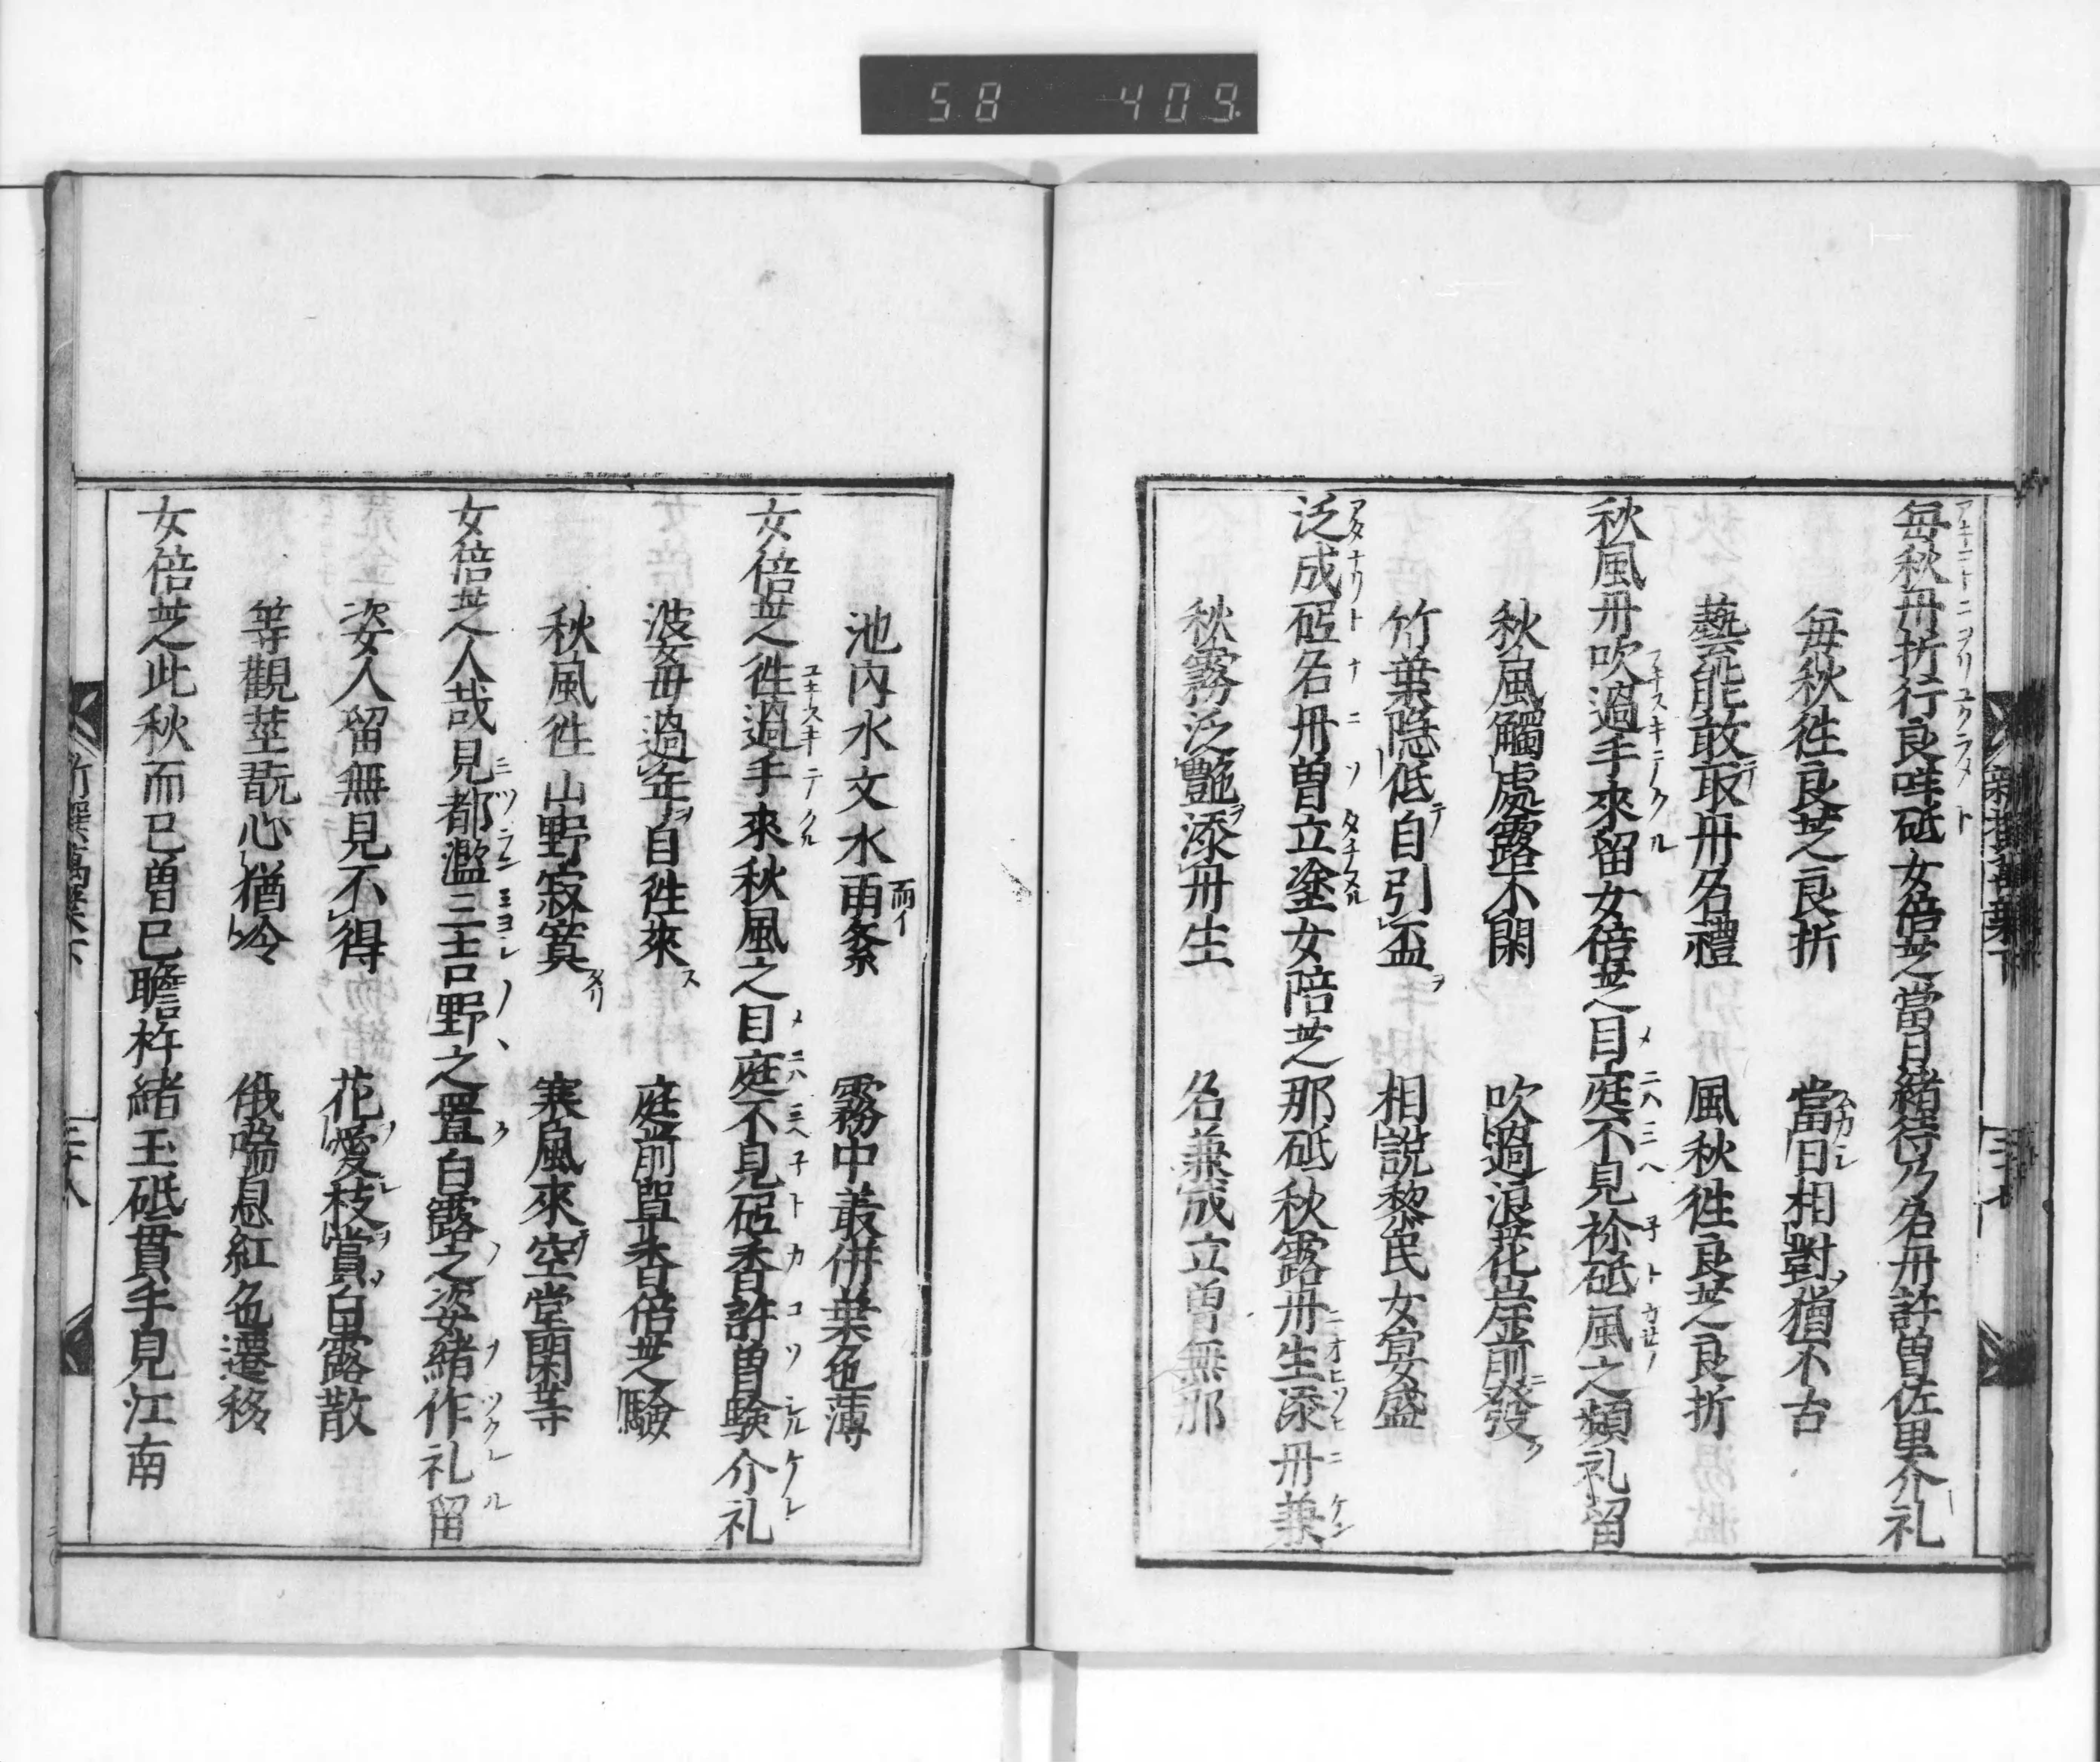 58 409
每秋丹折行良咩砥女倍芝當日緒待乃名丹許曽佐里介礼
每秋徃良芝良折 當日相對猶不古
藝能敢取丹名禮 風秋徃良芝良折
秋風丹吹過手來留女倍芝目庭不見裣砥風之頻礼留
秋風觸處露不閑 吹過浪花岸前發
竹葉隠低自引盃 相説黎民女宴盛
泛成砥名丹曽立塗女陪芝那砥秋露丹生添丹兼
秋霧泛艶添丹生 名兼成立曽無那
池内水文水雨紊 霧中叢併葉色薄
女倍芝徃過手來秋風之目庭不見砥香許曽験介礼
波女毋過年自徃來 庭前草香倍芝驗
秋風徃山野寂寞 寒風來空堂蘭等
女倍芝人哉見都濫三吉野之置白露之姿緒作礼留
姿人留無見不得 花愛枝賞白露散
等觀莖翫心猶冷 俄喘息紅色遷移
女倍芝此秋而已曽已瞻杵緒玉砥貫手見江南